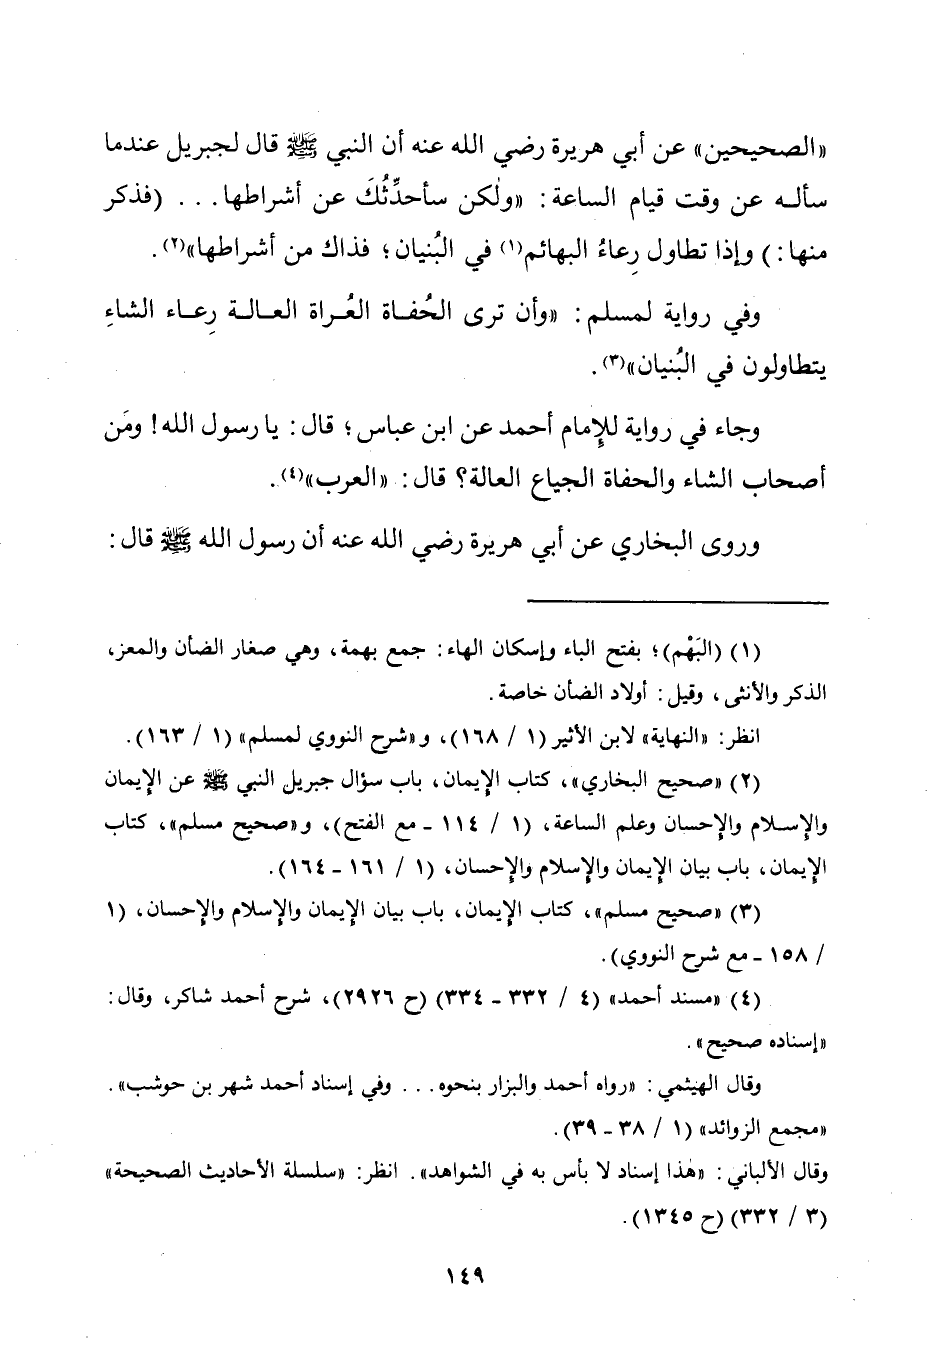 «الصحيحين» عن أبي هريرة رضي الله عنه أن النبي ﷺ قال لجبريل عندما
سألـه عن وقت قيام الساعة: «ولٰكن سأحدِّثُكَ عن أشراطها... (فذكر
منها:) وإذا تطاول رِعاءُ البهائم(١) في البُنيان؛ فذاك من أشراطها»(٢).
وفي رواية لمسلم: «وأن ترى الحُفـاة العُـراة العـالـة رِعـاء الشاءِ
يتطاولون في البُنيان»(٣).
وجاء في رواية للإمام أحمد عن ابن عباس؛ قال: يا رسول الله! ومَن
أصحاب الشاء والحفاة الجياع العالة؟ قال: «العرب»(٤).
وروى البخاري عن أبي هريرة رضي الله عنه أن رسول الله ﷺ قال:
(١) (البَهْم)؛ بفتح الباء وإسكان الهاء: جمع بهمة، وهي صغار الضأن والمعز،
الذكر والأنثى، وقيل: أولاد الضأن خاصة.
انظر: «النهاية» لابن الأثير (١ / ١٦٨)، و«شرح النووي لمسلم» (١ / ١٦٣).
(٢) «صحيح البخاري»، كتاب الإيمان، باب سؤال جبريل النبي ﷺ عن الإيمان
والإسـلام والإحسان وعلم الساعة، (١ / ١١٤ ـ مع الفتح)، و«صحيح مسلم»، كتاب
الإيمان، باب بيان الإيمان والإسلام والإحسان، (١ / ١٦١ ـ ١٦٤).
(٣) «صحيح مسلم»، كتاب الإيمان، باب بيان الإيمان والإسلام والإحسان، (١
/ ١٥٨ ـ مع شرح النووي).
(٤) «مسند أحمد» (٤ / ٣٣٢ ـ ٣٣٤) (ح ٢٩٢٦)، شرح أحمد شاكر، وقال:
«إسناده صحيح».
وقال الهيثمي: «رواه أحمد والبزار بنحوه... وفي إسناد أحمد شهر بن حوشب».
«مجمع الزوائد» (١ / ٣٨ ـ ٣٩).
وقال الألباني: «هٰذا إسناد لا بأس به في الشواهد». انظر: «سلسلة الأحاديث الصحيحة»
(٣ / ٣٣٢) (ح ١٣٤٥).
١٤٩